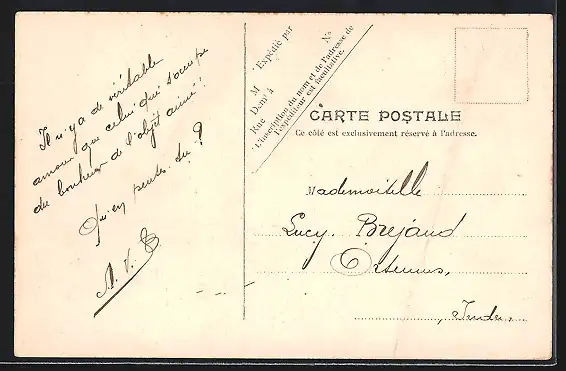 Il n'y a de véritable
amour que celui qui s'occupe
du bonheur de l'objet aimé!
Qu'en penses-tu?
A. V.
Expédié par
M
Dem^t à
Rue
N°
L'inscription du nom et de l'adresse de
l'expéditeur est facultative.
CARTE POSTALE
Ce côté est exclusivement réservé à l'adresse.
Mademoiselle
Lucy. Brejaud
, Indre.